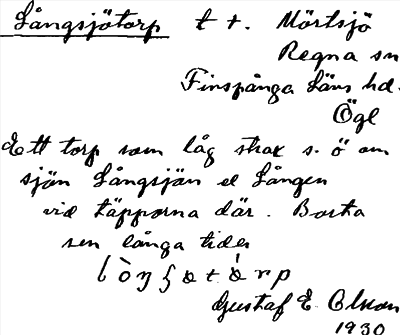 Långsjötorp t t. Mörtsjö
Regna sn
Finspånga läns hd.
Ögl
Ett torp som låg strax s. ö om
sjön Långsjön el Lången
vid täpporna där. Borta
sen långa tider
Gustaf E. Olson
1930